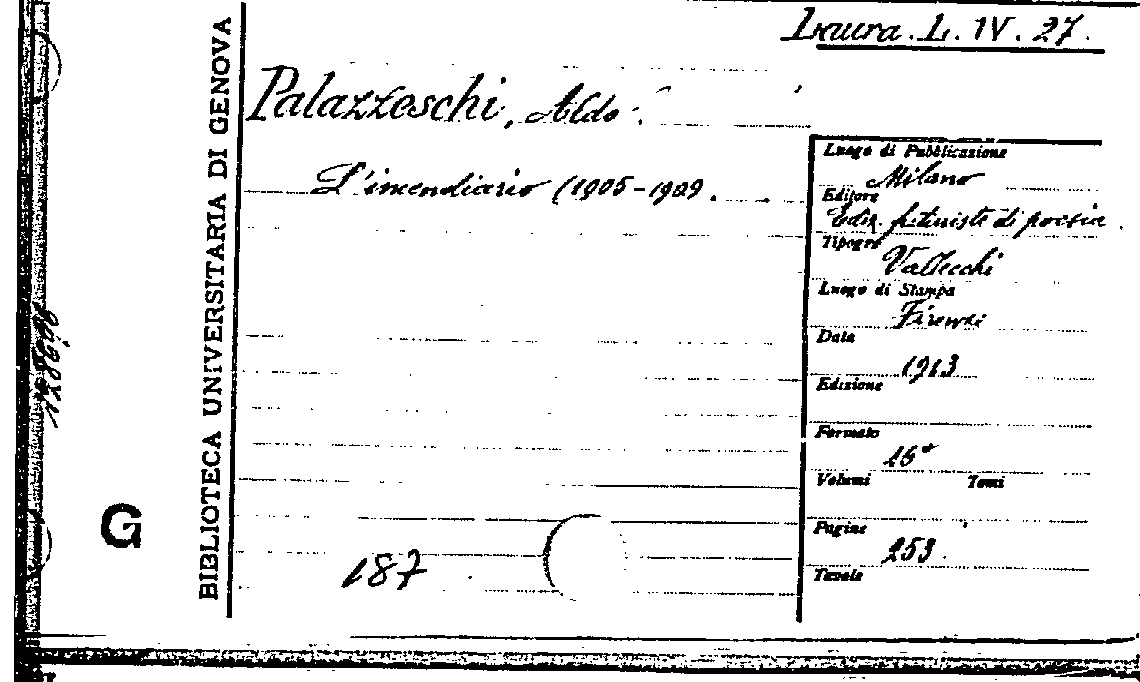 Laura. L. IV. 27.
BIBLIOTECA UNIVERSITARIA DI GENOVA
G
Palazzeschi, Aldo.
L'incendiario (1905-1909.
187
Luogo di Pubblicazione
Milano
Editore
Ediz. futuriste di poesia.
Tipogr
Vallecchi
Luogo di Stampa
Firenze
Data
1913
Edizione
Formato
16°
Volumi Tomi
Pagine
253.
Tavole